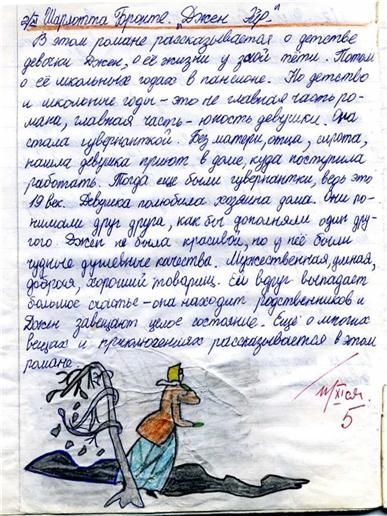 Шарлотта Бронте. „Джен Эйр."
В этом романе рассказывается о детстве
девочки Джен, о её жизни у злой тёти. Потом
о её школьных годах в пансионе. Но детство
и школьные годы - это не главная часть ро-
мана, главная часть - юность девушки. Она
стала гувернанткой. Без матери, отца, сирота,
нашла девушка приют в доме, куда поступила
работать. Тогда ещё были гувернантки, ведь это
19 век. Девушка полюбила хозяина дома. Они по-
нимали друг друга, как бы дополняли один дру-
гого. Джен не была красивой, но у неё были
чудные душевные качества. Мужественная, умная,
добрая, хороший товарищ. Ей вдруг выпадает
большое счастье - она находит родственников и
Джен завещают целое состояние. Ещё о многих
вещах и приключениях рассказывается в этом
романе
5